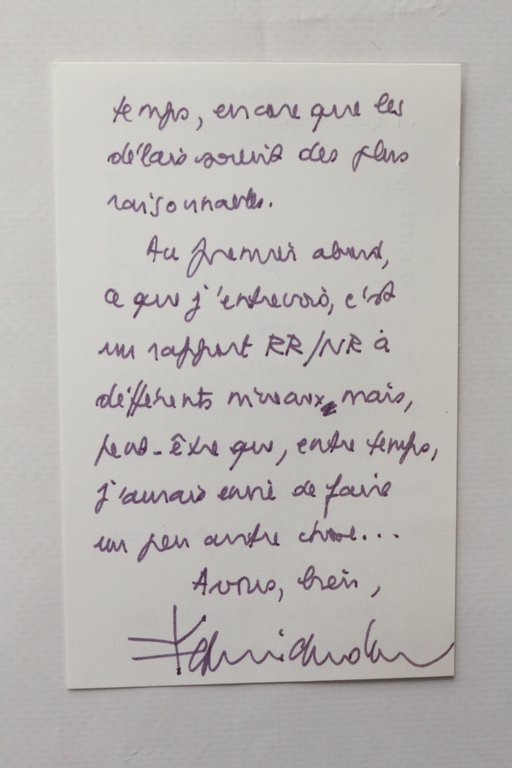 temps, encore que les
délais soient des plus
raisonnables.
Au premier abord,
ce que j'entrevois, c'est
un rapport RR/NR à
différents niveaux, mais,
peut-être que, entre temps,
j'aurais envie de faire
un peu autre chose...
A vous, bien,